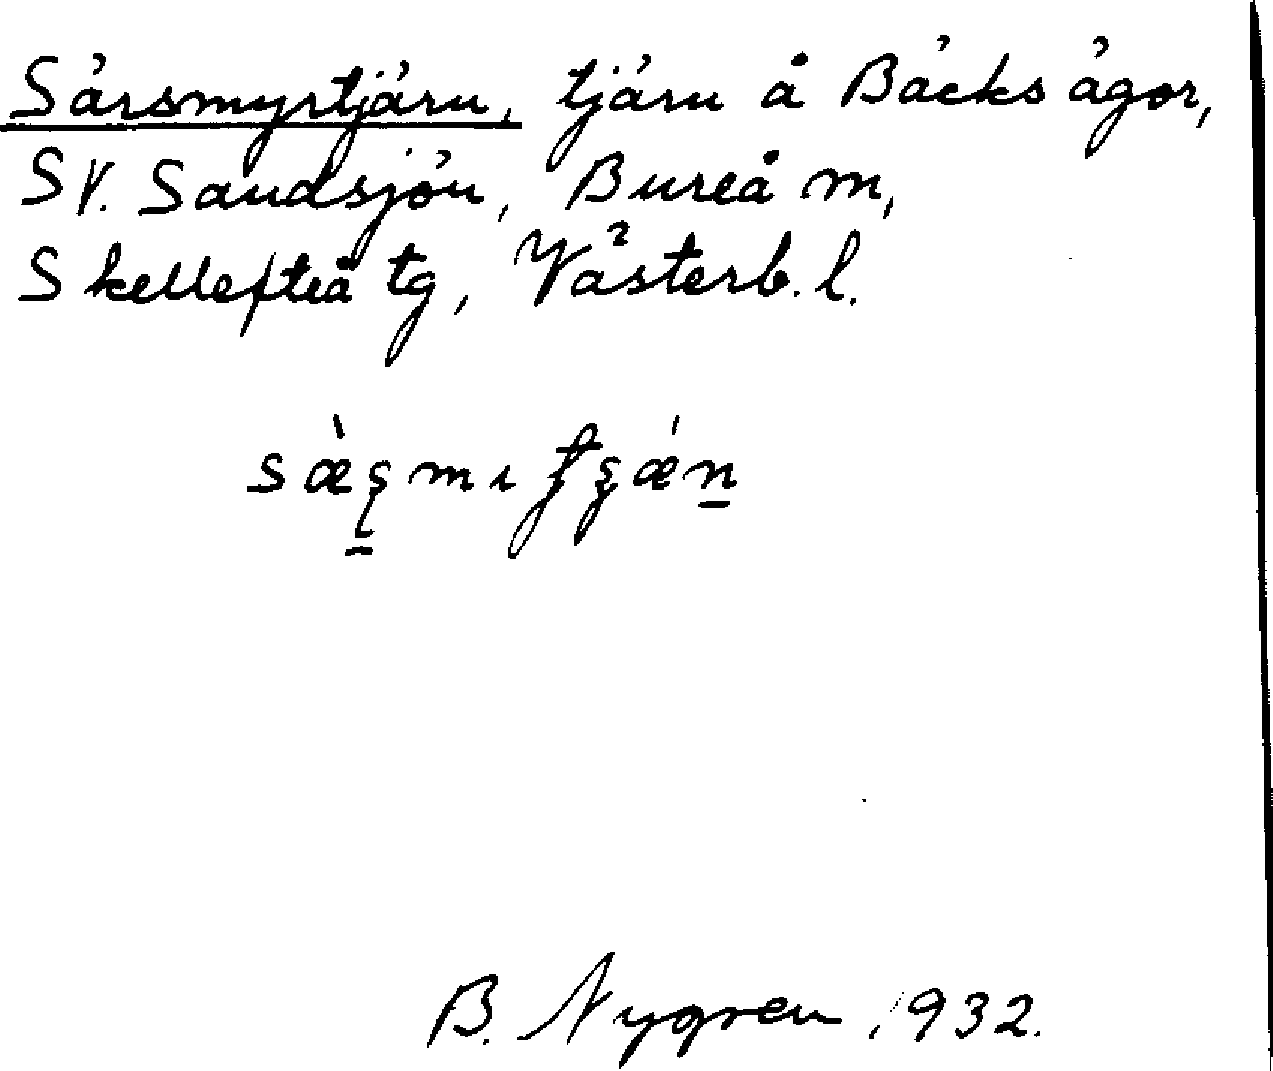 Särsmyrtjärn, tjärn å Bäcks ägor,
SV. Sandsjön, Bureå m,
Skellefteå tg, Västerb. l.
B. Nygren 1932.